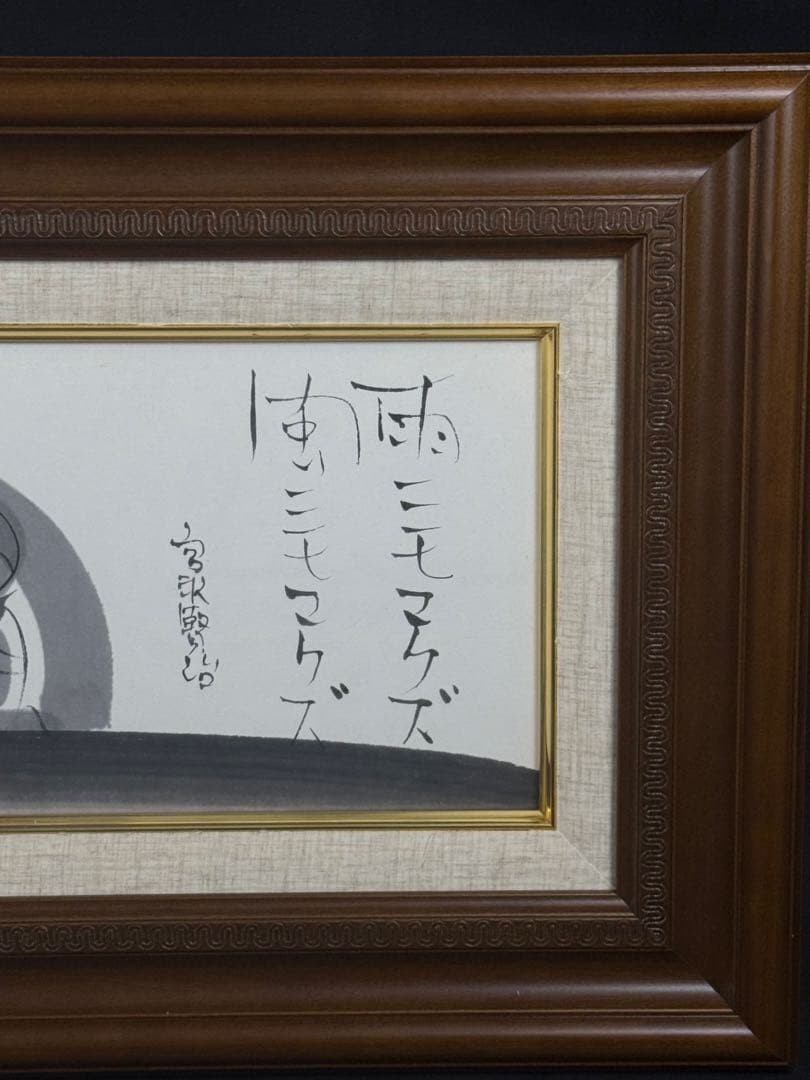 雨ニモマケズ
風ニモマケズ
宮沢賢治